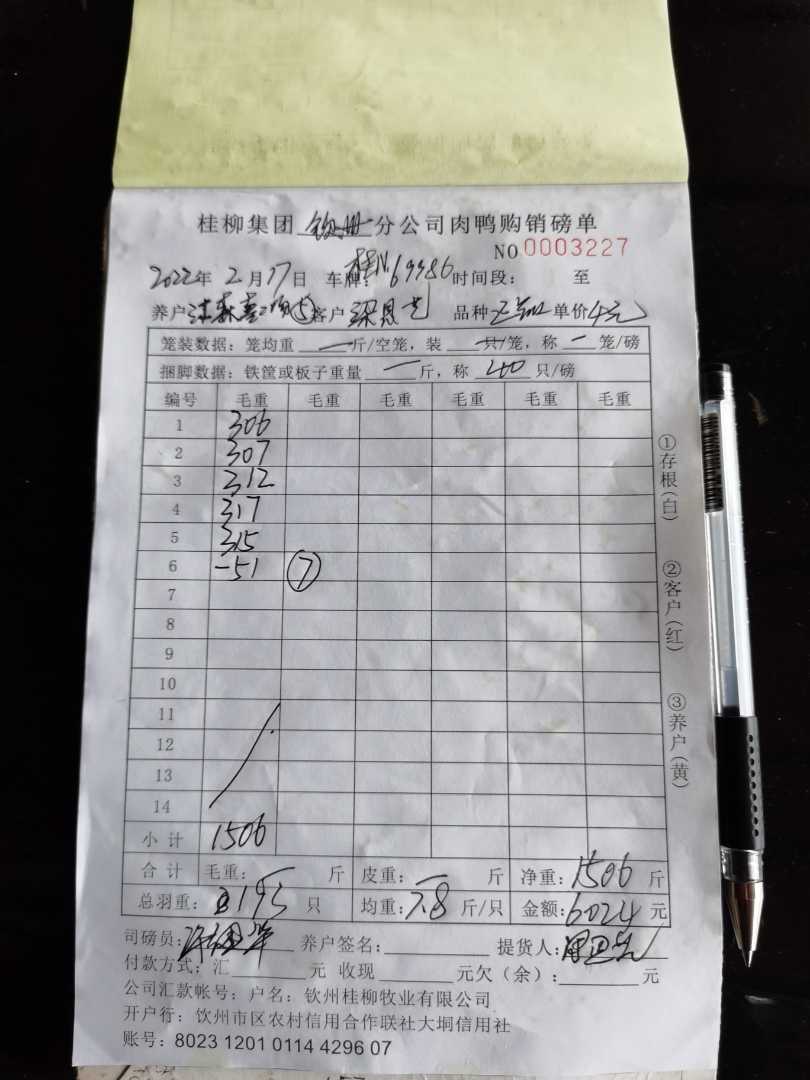 桂柳集团 钦州 分公司肉鸭购销磅单
NO 0003227
2022年 2月17日 车牌: 69986 时间段: 至
养户 客户 梁恩 品种 单价 4元
笼装数据: 笼均重 — 斤/空笼, 装 — 只/笼, 称 — 笼/磅
捆脚数据: 铁筐或板子重量 — 斤, 称 40 只/磅
编号 毛重 毛重 毛重 毛重 毛重 毛重
1 306
2 307
3 312
4 317
5 315
6 -51 ⑦
7
8
9
10
11
12
13
14
小计 1506
合计 毛重: — 斤 皮重: — 斤 净重: 1506 斤
总羽重: 193 只 均重: 7.8 斤/只 金额: 6024 元
司磅员: 养户签名: 提货人:
付款方式: 汇 元 收现 元欠(余): 元
公司汇款帐号: 户名: 钦州桂柳牧业有限公司
开户行: 钦州市区农村信用合作联社大垌信用社
账号: 8023 1201 0114 4296 07
①存根(白)
②客户(红)
③养户(黄)